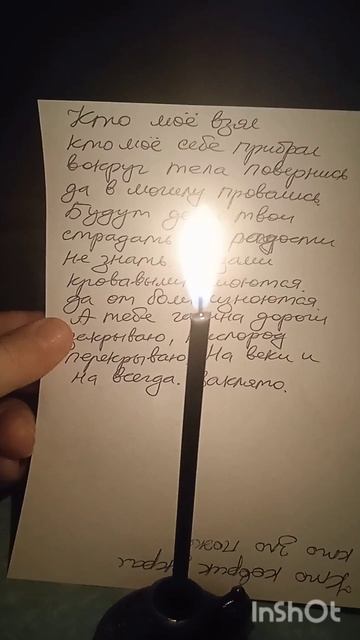 Кто моё взял
кто моё себе прибрал
вокруг тела повернись
да в могилу провались
Будут твои
страдать радости
не знать
кровавыми
да от боли изноются
А тебе на дороги
закрываю, кислород
перекрываю На веки и
на всегда. Заклято.
кто зло
Кто коврик украл
InShOt